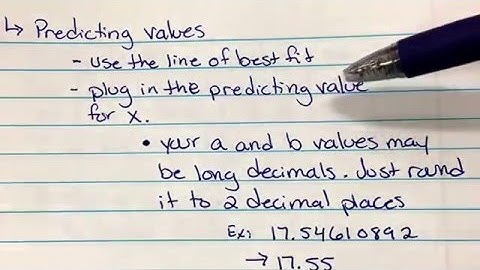 ↳ Predicting values
- use the line of best fit
- plug in the predicting value
for x.
• your a and b values may
be long decimals. Just round
it to 2 decimal places
Ex: 17.54610892
→ 17.55